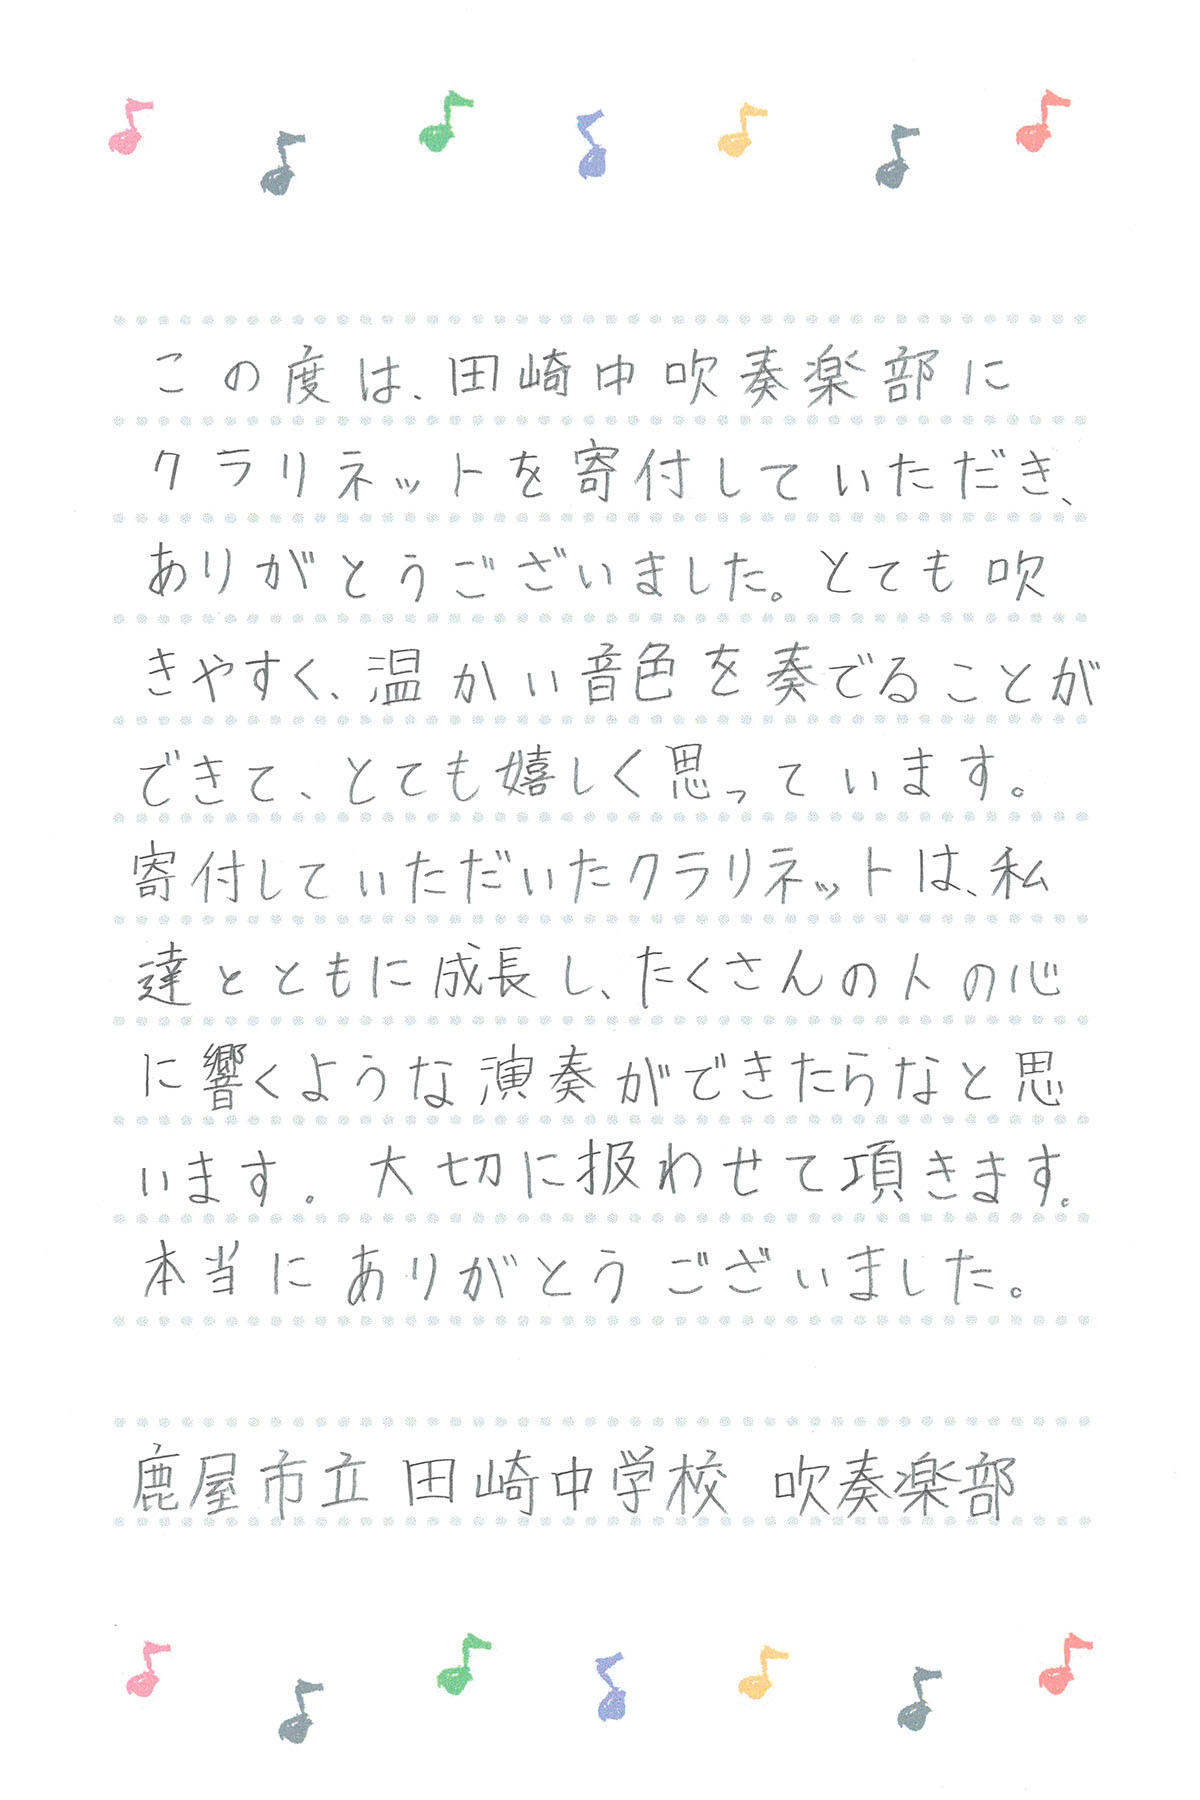 この度は、田崎中吹奏楽部に
クラリネットを寄付していただき、
ありがとうございました。とても吹
きやすく、温かい音色を奏でることが
できて、とても嬉しく思っています。
寄付していただいたクラリネットは、私
達とともに成長し、たくさんの人の心
に響くような演奏ができたらなと思
います。大切に扱わせて頂きます。
本当にありがとうございました。
鹿屋市立 田崎中学校 吹奏楽部